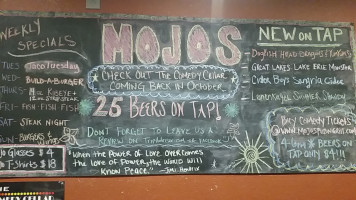 WEEKLY
SPECIALS
TUE - TACO TUESDAY
WED - BUILD-A-BURGER
THU -
12oz STRIP STEAK
FRI - FISH FISH FISH
SAT - STEAK NIGHT
SUN - BURGERS &
GLASSES $4
T-SHIRTS $18
MOJOS
CHECK OUT THE COMEDY CELLAR
COMING BACK IN OCTOBER
25 BEERS ON TAP!
DON'T FORGET TO LEAVE US A
REVIEW ON
"WHEN THE POWER OF LOVE OVERCOMES
THE LOVE OF POWER, THE WORLD WILL
KNOW PEACE." - JIMI HENDRIX
NEW ON TAP
DOGFISH HEAD
GREAT LAKES LAKE ERIE MONSTER
CIDER BOYS SANGRIA CIDER
LEINENKUGEL SUMMER SHANDY
BUY COMEDY TICKETS
@ WWW.MOJOS
4-6PM BEERS ON
TAP ONLY $4!!!